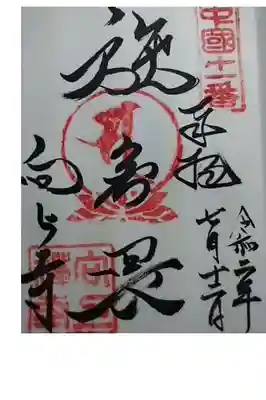 中國十一番
奉拝
令和二年
七月十二日
施無畏
向上寺